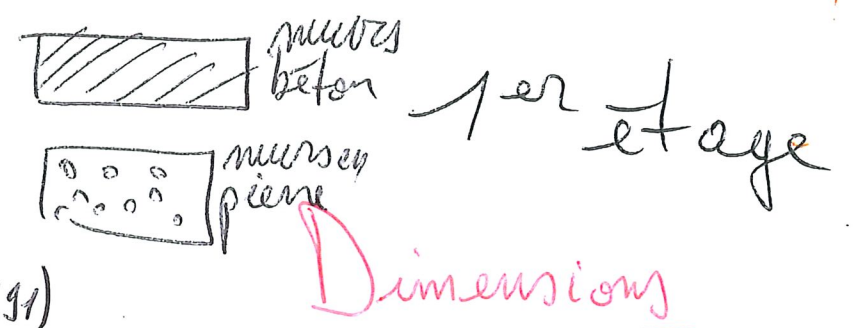 murs
béton
1er étage
murs en
pierre
Dimensions
91)